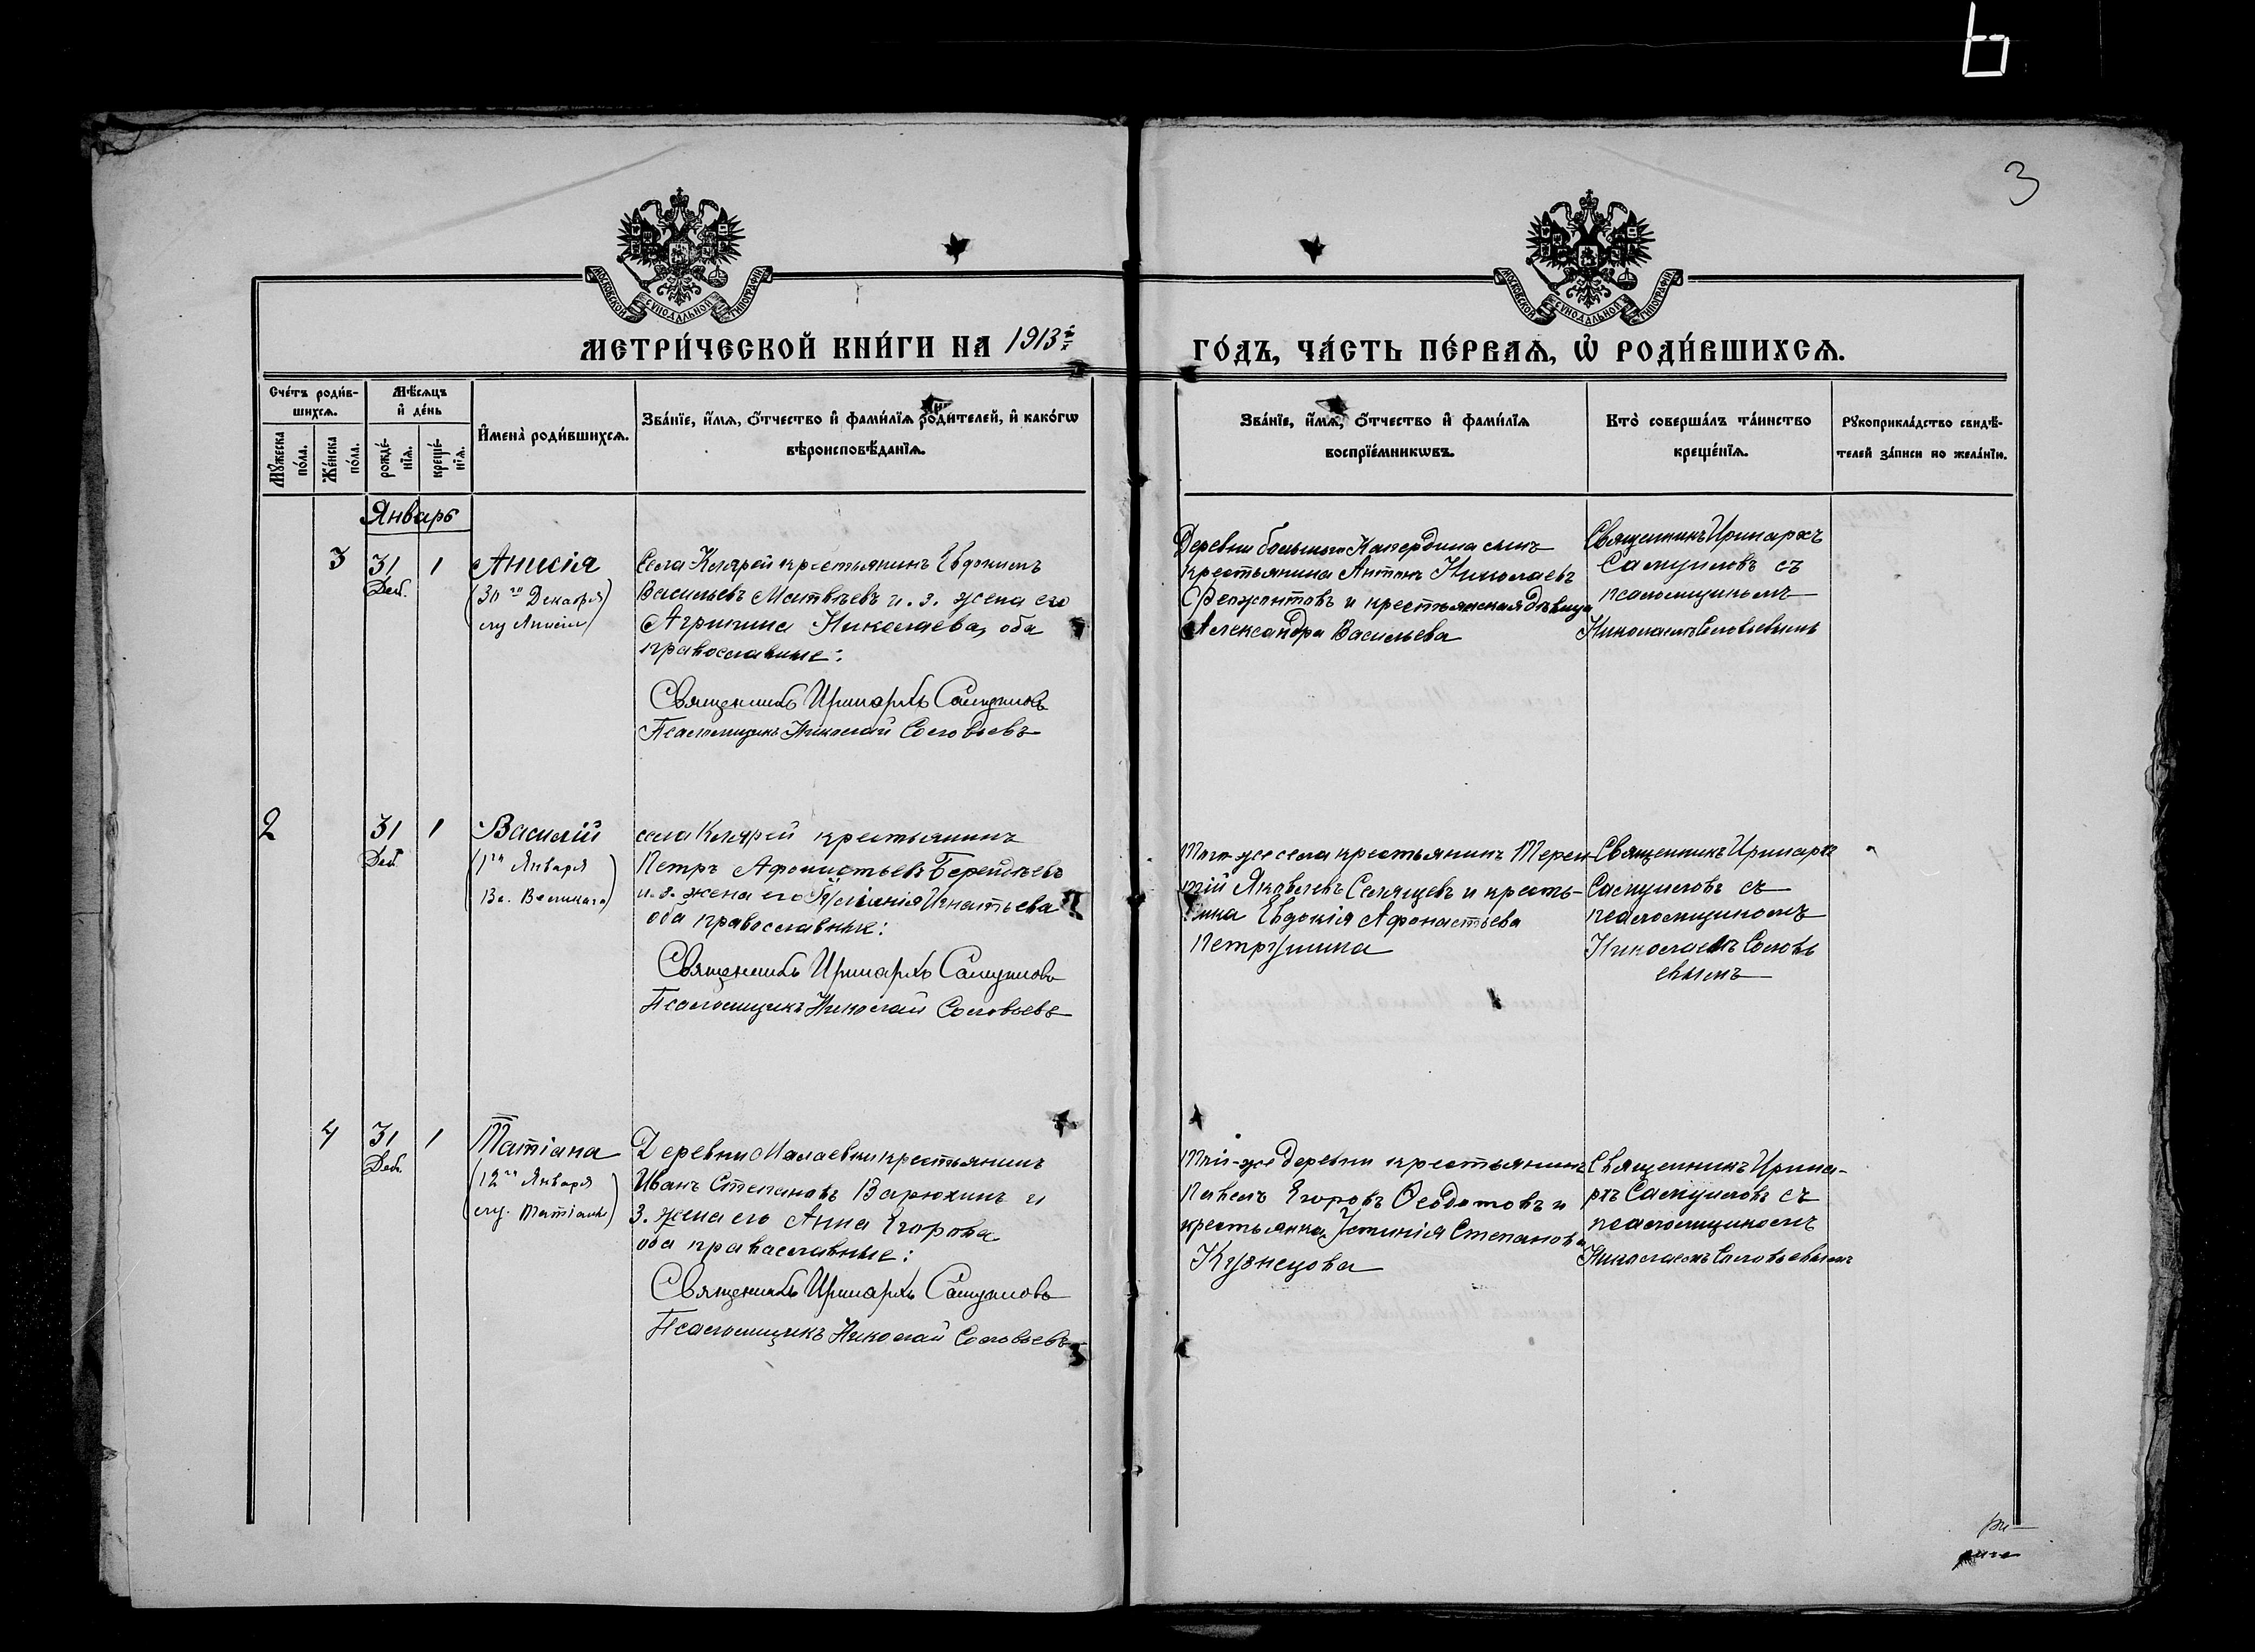 3
МОСКОВСКОЙ СУНОДАЛЬНОЙ ТИПОГРАФІИ
МОСКОВСКОЙ СУНОДАЛЬНОЙ ТИПОГРАФІИ
МЕТРИ́ЧЕСКОЙ КНИ́ГИ НА 1913й
ГО́ДЪ, ЧА́СТЬ ПЕ́РВАѦ, Ѡ҆ РОДИ́ВШИХСѦ.
Сче́тъ роди́в-
шихсѧ.
Мꙋ́жеска
по́ла.
Же́нска
по́ла.
Мѣ́сѧцъ
и҆ де́нь
рожде́-
нїѧ.
креще́-
нїѧ.
И҆мена̀ роди́вшихсѧ.
Зва́нїе, и҆́мѧ, ѻ҆́тчество и҆ фами́лїѧ роди́телей, и҆ како́гѡ
вѣроисповѣ́данїѧ.
Зва́нїе, и҆́мѧ, ѻ҆́тчество и҆ фами́лїѧ
воспрїе́мникѡвъ.
Кто̀ соверша́лъ та́инство
креще́нїѧ.
Рꙋкоприкла́дство свидѣ́-
телей за́писи по жела́нїю.
Январь
3
31
Дек.
1
Анисія
(30го Декабря
му Анисіи)
Села Клярей крестьянинъ Евдокимъ
Васильевъ Матвѣевъ и. з. жена его
Агрипина Николаева, оба
православные:
Священникъ Иринархъ Самуиловъ
Псаломщикъ Николай Соловьевъ
Деревни большого сынъ
крестьянина Антонъ Николаевъ
и крестьянская дѣвица
Александра Васильева
Священникъ Иринархъ
Самуиловъ съ
псаломщикомъ
Николаемъ Соловьевымъ
2
31
Дек.
1
Василій
(1го Января
Ва. Великаго)
села Клярей крестьянинъ
Петръ Афонастьевъ
и. з. жена его Игнатьева
оба православные:
Священникъ Иринархъ Самуиловъ
Псаломщикъ Николай Соловьевъ
Того-же села крестьянинъ Терен-
тій Яковлевъ и кресть-
Евдокія Афонастьева
Петрушина
Священникъ Иринархъ
Самуиловъ съ
псаломщикомъ
Николаемъ Соловь
евымъ
4
31
Дек.
1
Татіана
(12го Января
му. Татіаны)
Деревни Малаевки крестьянинъ
Иванъ Степановъ Варюхинъ и
з. жена его Анна Егорова
оба православные:
Священникъ Иринархъ Самуиловъ
Псаломщикъ Николай Соловьевъ
Той-же деревни крестьянинъ
Павелъ Егоровъ Ѳеодотовъ и
крестьянка Устинія Степанова
Кузнецова
Священникъ Ирина-
рхъ Самуиловъ съ
псаломщикомъ
Николаемъ Соловьевымъ